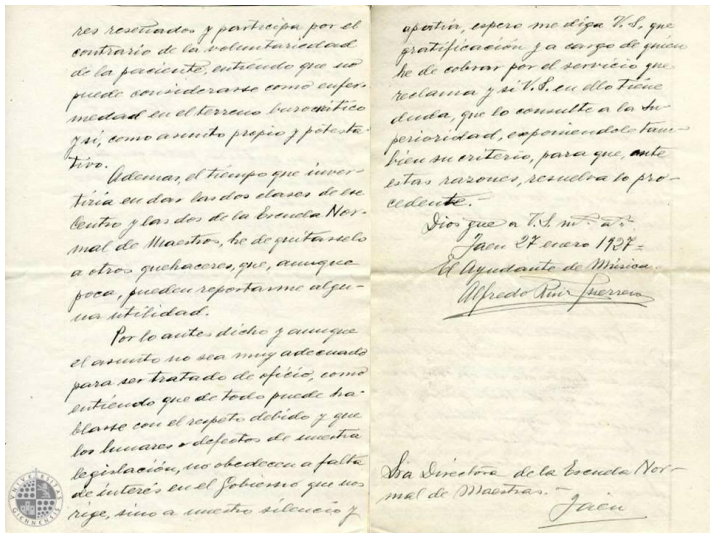 res reseñados y participa por el
contrario de la voluntariedad
de la paciente, entiendo que no
puede considerarse como enfer-
medad en el terreno burocrático
y sí, como asunto propio y potesta-
tivo.
Ademas, el tiempo que inver-
tiria en dar las dos clases de ese
Centro y las dos de la Escuela Nor-
mal de Maestros, he de quitarselo
a otros quehaceres, que, aunque
poca, pueden reportarme algu-
na utilidad.
Por lo antes dicho y aunque
el asunto no sea muy adecuado
para ser tratado de oficio, como
entiendo que de todo puede ha-
blarse con el respeto debido y que
los lunares o defectos de nuestra
legislación, no obedecen a falta
de interés en el Gobierno que nos
rige, sino a nuestro silencio y
apatia, espero me diga V.S. que
gratificación y a cargo de quien
he de cobrar por el servicio que
reclama y si V.S. en ello tiene
duda, que lo consulte a la Su-
perioridad, exponiendole tam-
bien su criterio, para que, ante
estas razones, resuelva lo pro-
cedente.-
Dios gue a V.S. m.s a.s
Jaen 27 enero 1927=
El Ayudante de Música.
Alfredo Ruiz Guerrero
Sra Directora de la Escuela Nor-
mal de Maestras.-
Jaén